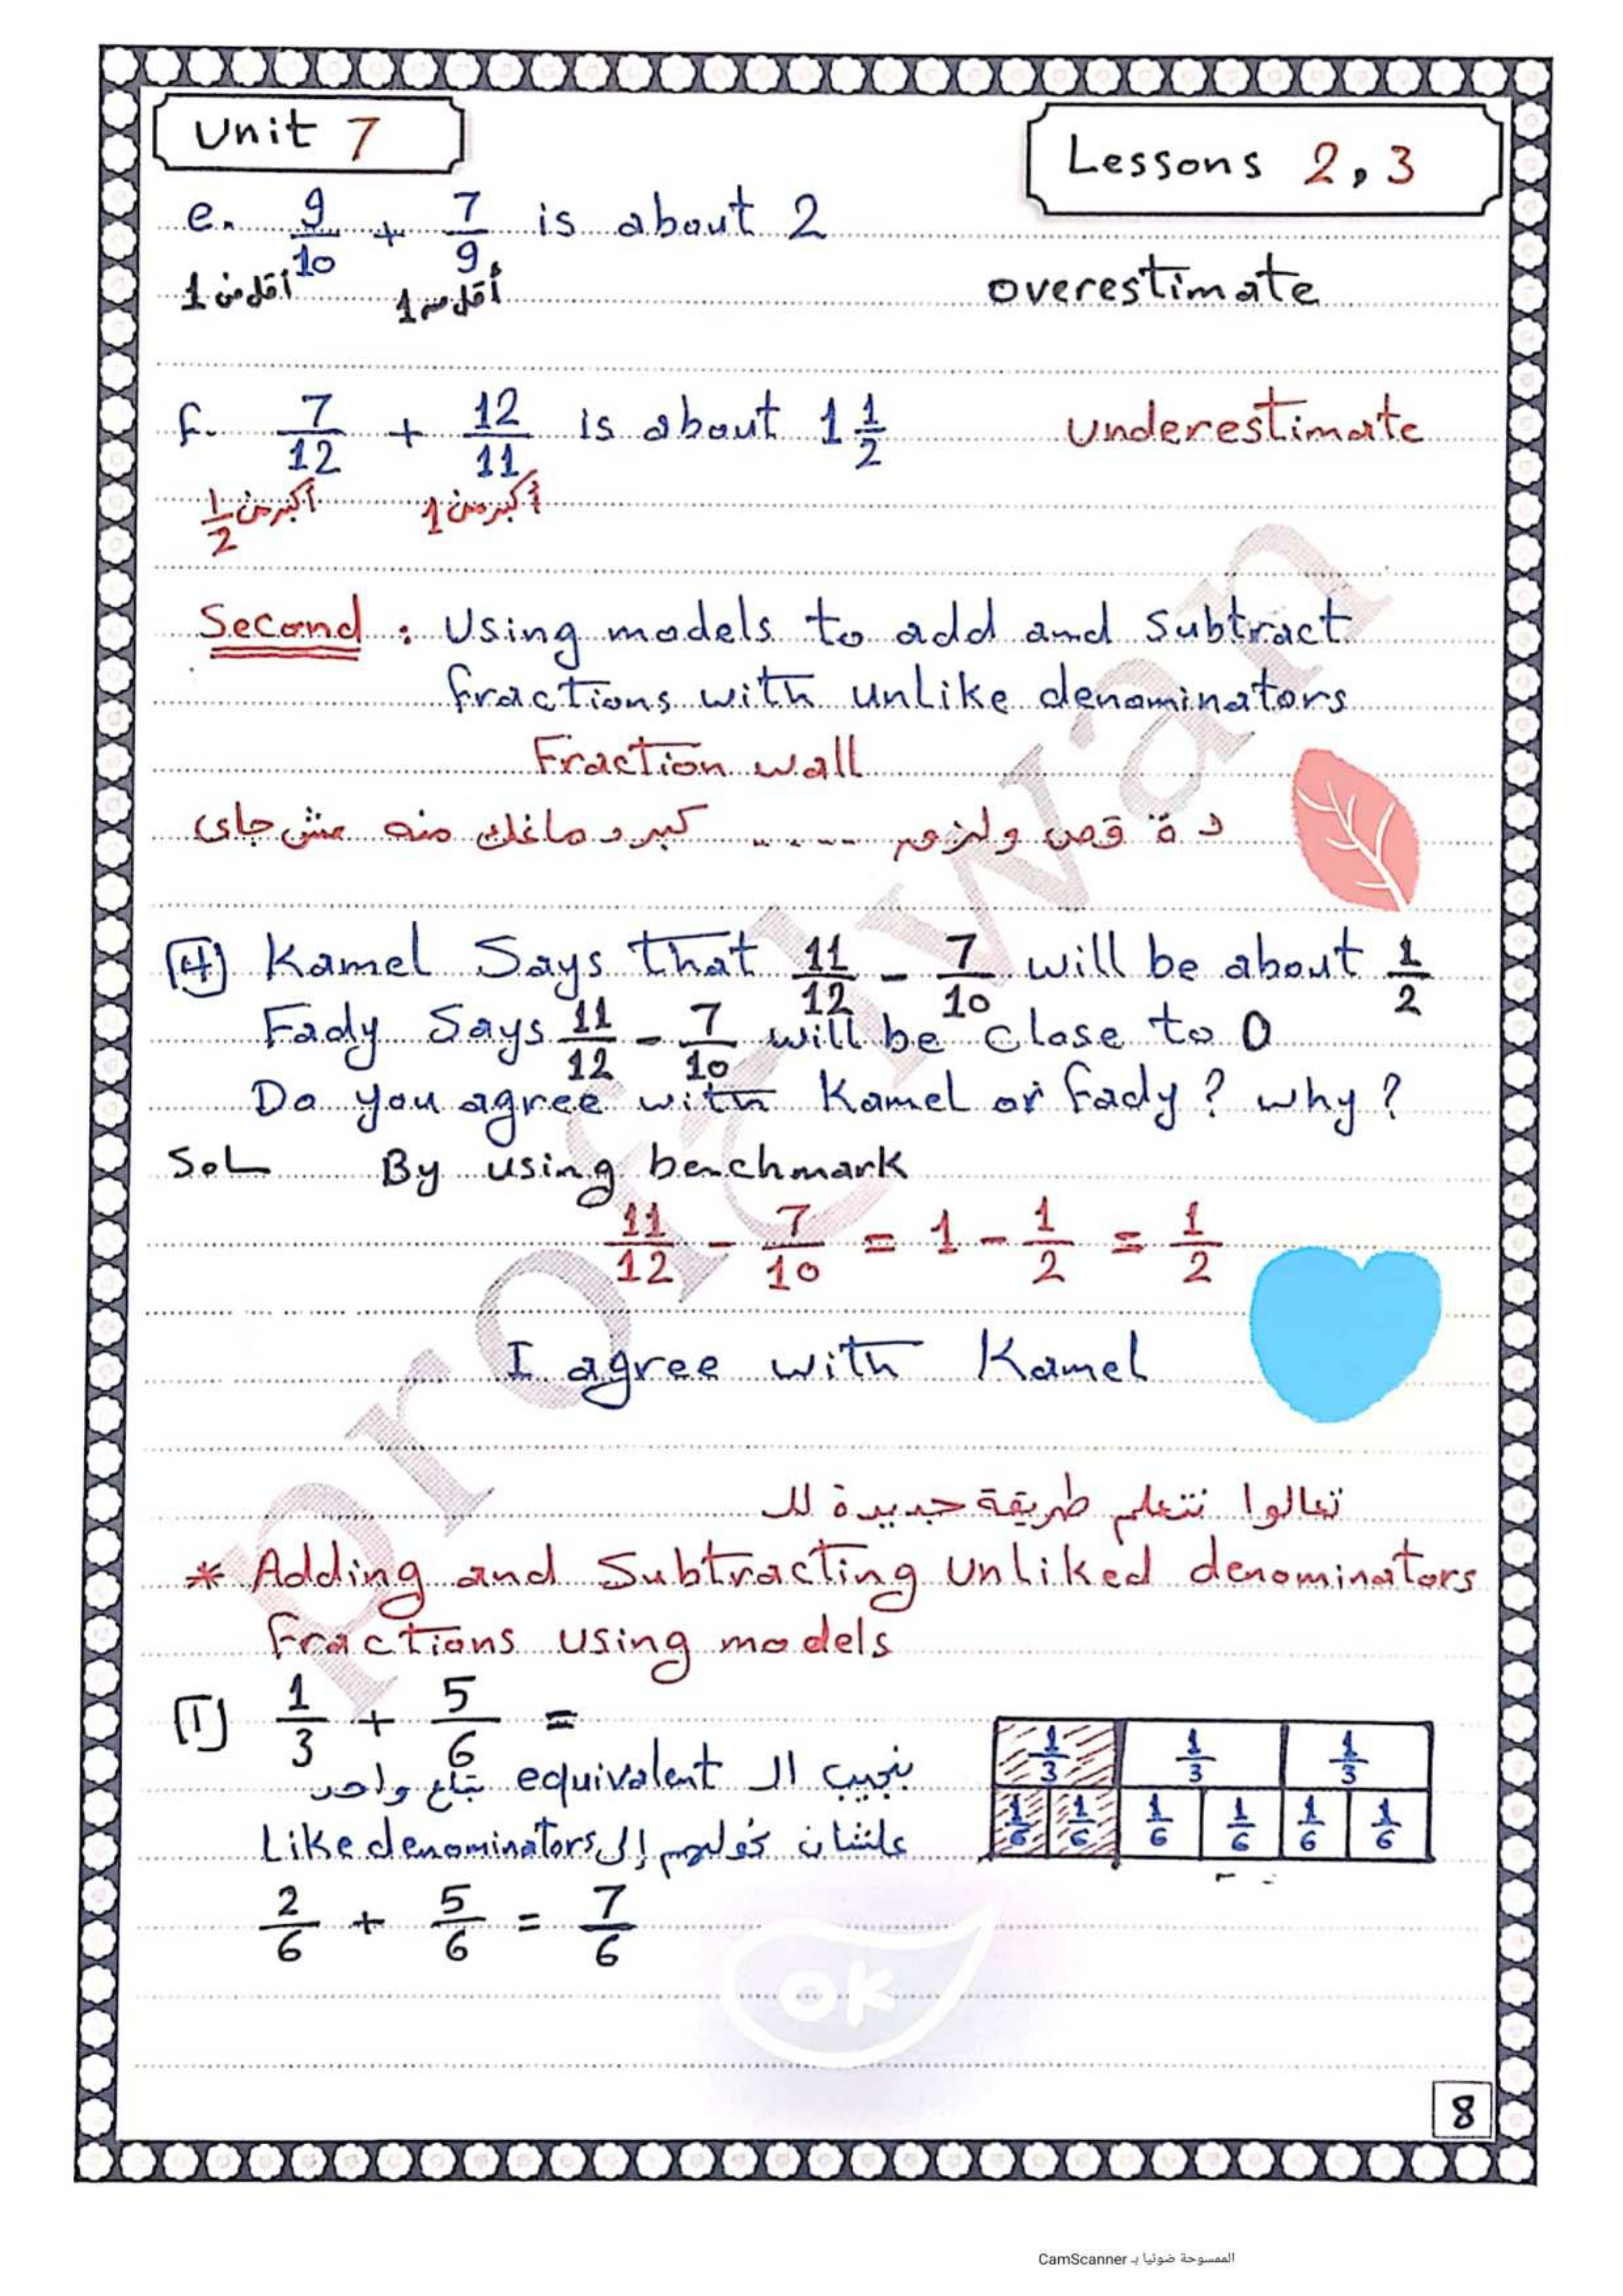 Unit 7
Lessons 2, 3
e. 9/10 + 7/9 is about 2
أقل من 1 أقل من 1 overestimate
f. 7/12 + 12/11 is about 1 1/2 underestimate
أكبر من 1/2 أكبر من 1
Second : Using models to add and subtract
fractions with unlike denominators
Fraction wall
دة قص ولزق ..... كبر دماغك منه مش جاى
4 Kamel Says that 11/12 - 7/10 will be about 1/2
Fady Says 11/12 - 7/10 will be close to 0
Do you agree with Kamel or fady? why?
Sol By using benchmark
11/12 - 7/10 = 1 - 1/2 = 1/2
I agree with Kamel
تعالوا نتعلم طريقة جديدة لل
* Adding and Subtracting Unliked denominators
fractions using models
1 1/3 + 5/6 =
بنجيب ال equivalent بتاع واحد
علشان نحولهم إلى Like denominators
2/6 + 5/6 = 7/6
1/3 1/3 1/3
1/6 1/6 1/6 1/6 1/6 1/6
ok
8
الممسوحة ضوئيا بـ CamScanner